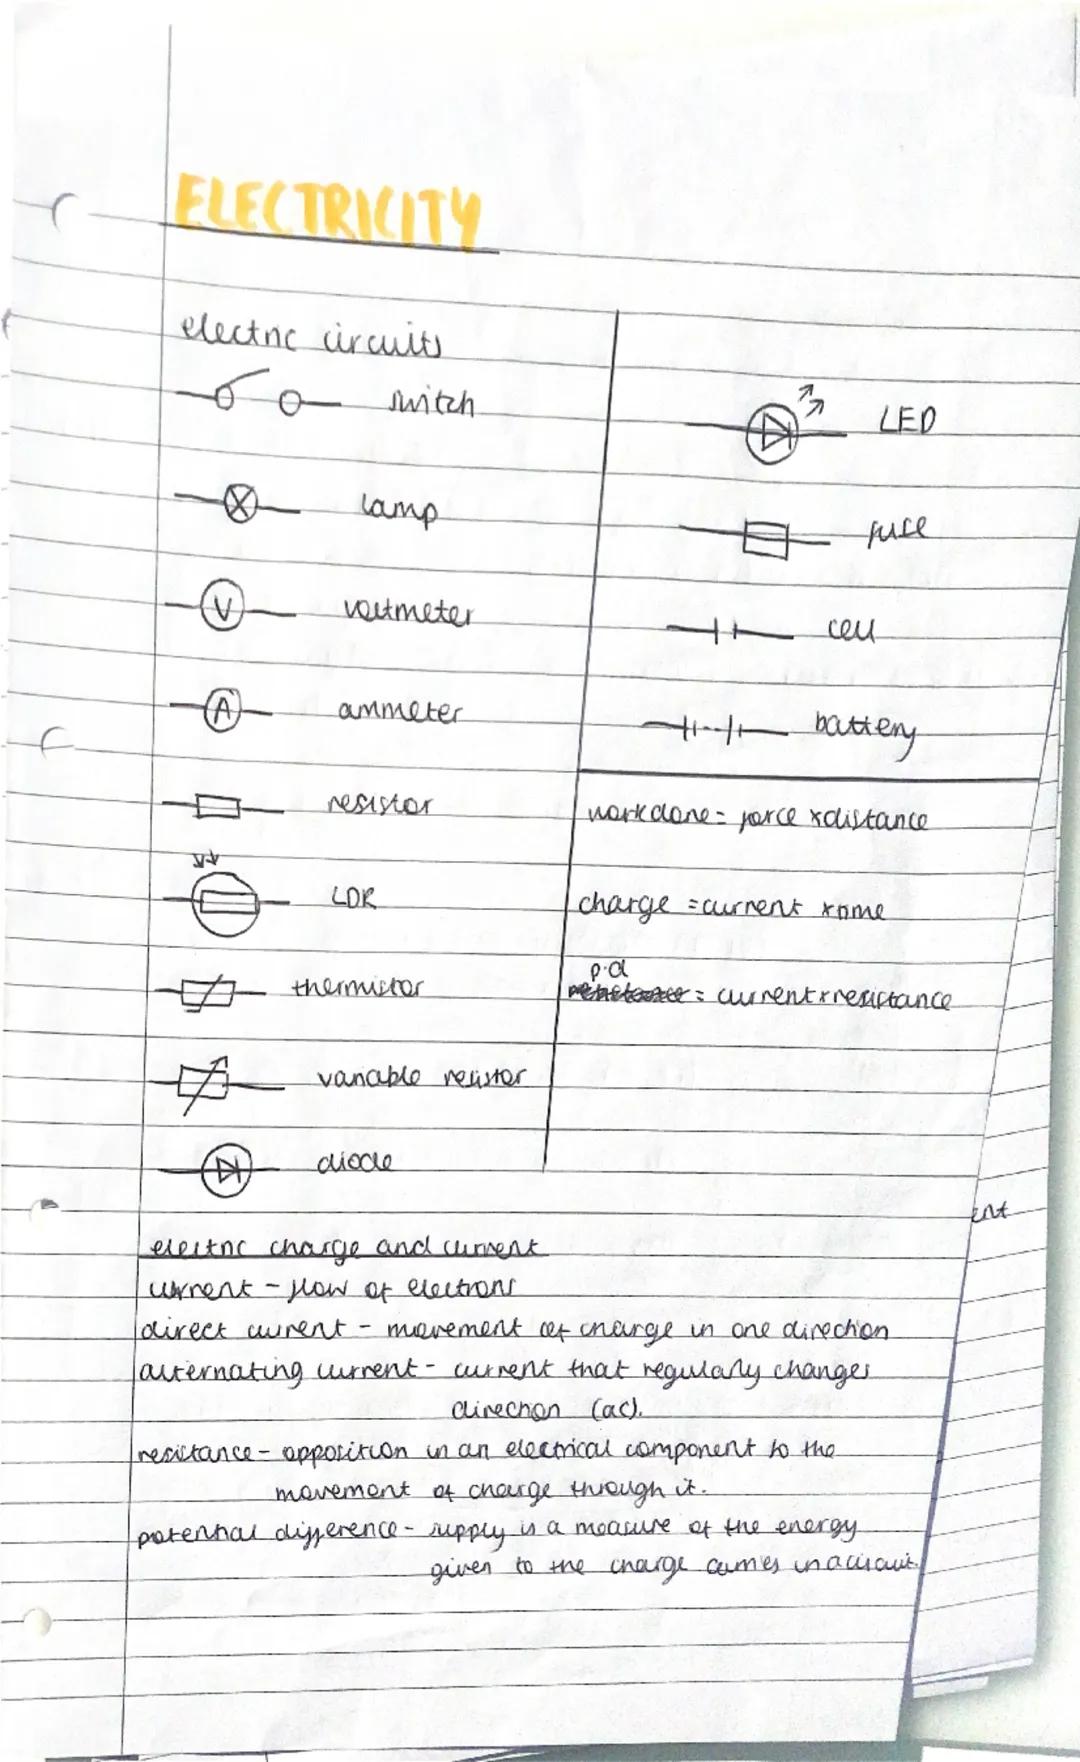 ELECTRICITY
electric circuits
switch
lamp
V voltmeter
A ammeter
resistor
LDR
thermistor
variable resistor
diode
LED
fuse
cell
battery
work done = force x distance
charge = current x time
p.d
= current x resistance
electric charge and current
current - flow of electrons
direct current - movement of charge in one direction
alternating current - current that regularly changes
direction (ac).
resistance - opposition in an electrical component to the
movement of charge through it.
potential difference - supply is a measure of the energy
given to the charge carries in a circuit.
ent